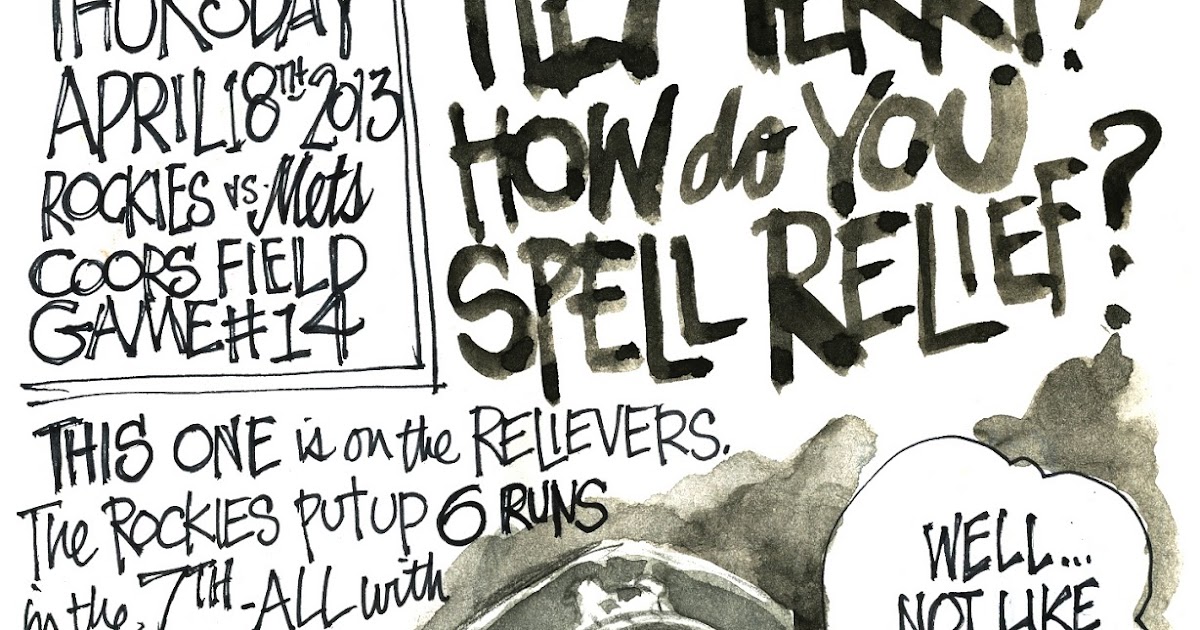 THURSDAY
APRIL 18TH 2013
ROCKIES vs. Mets
COORS FIELD
GAME #14
HEY TERRY?
HOW do YOU
SPELL RELIEF?
THIS ONE is on the RELIEVERS.
The ROCKIES PUT UP 6 RUNS
in the 7TH - ALL with
WELL...
NOT LIKE